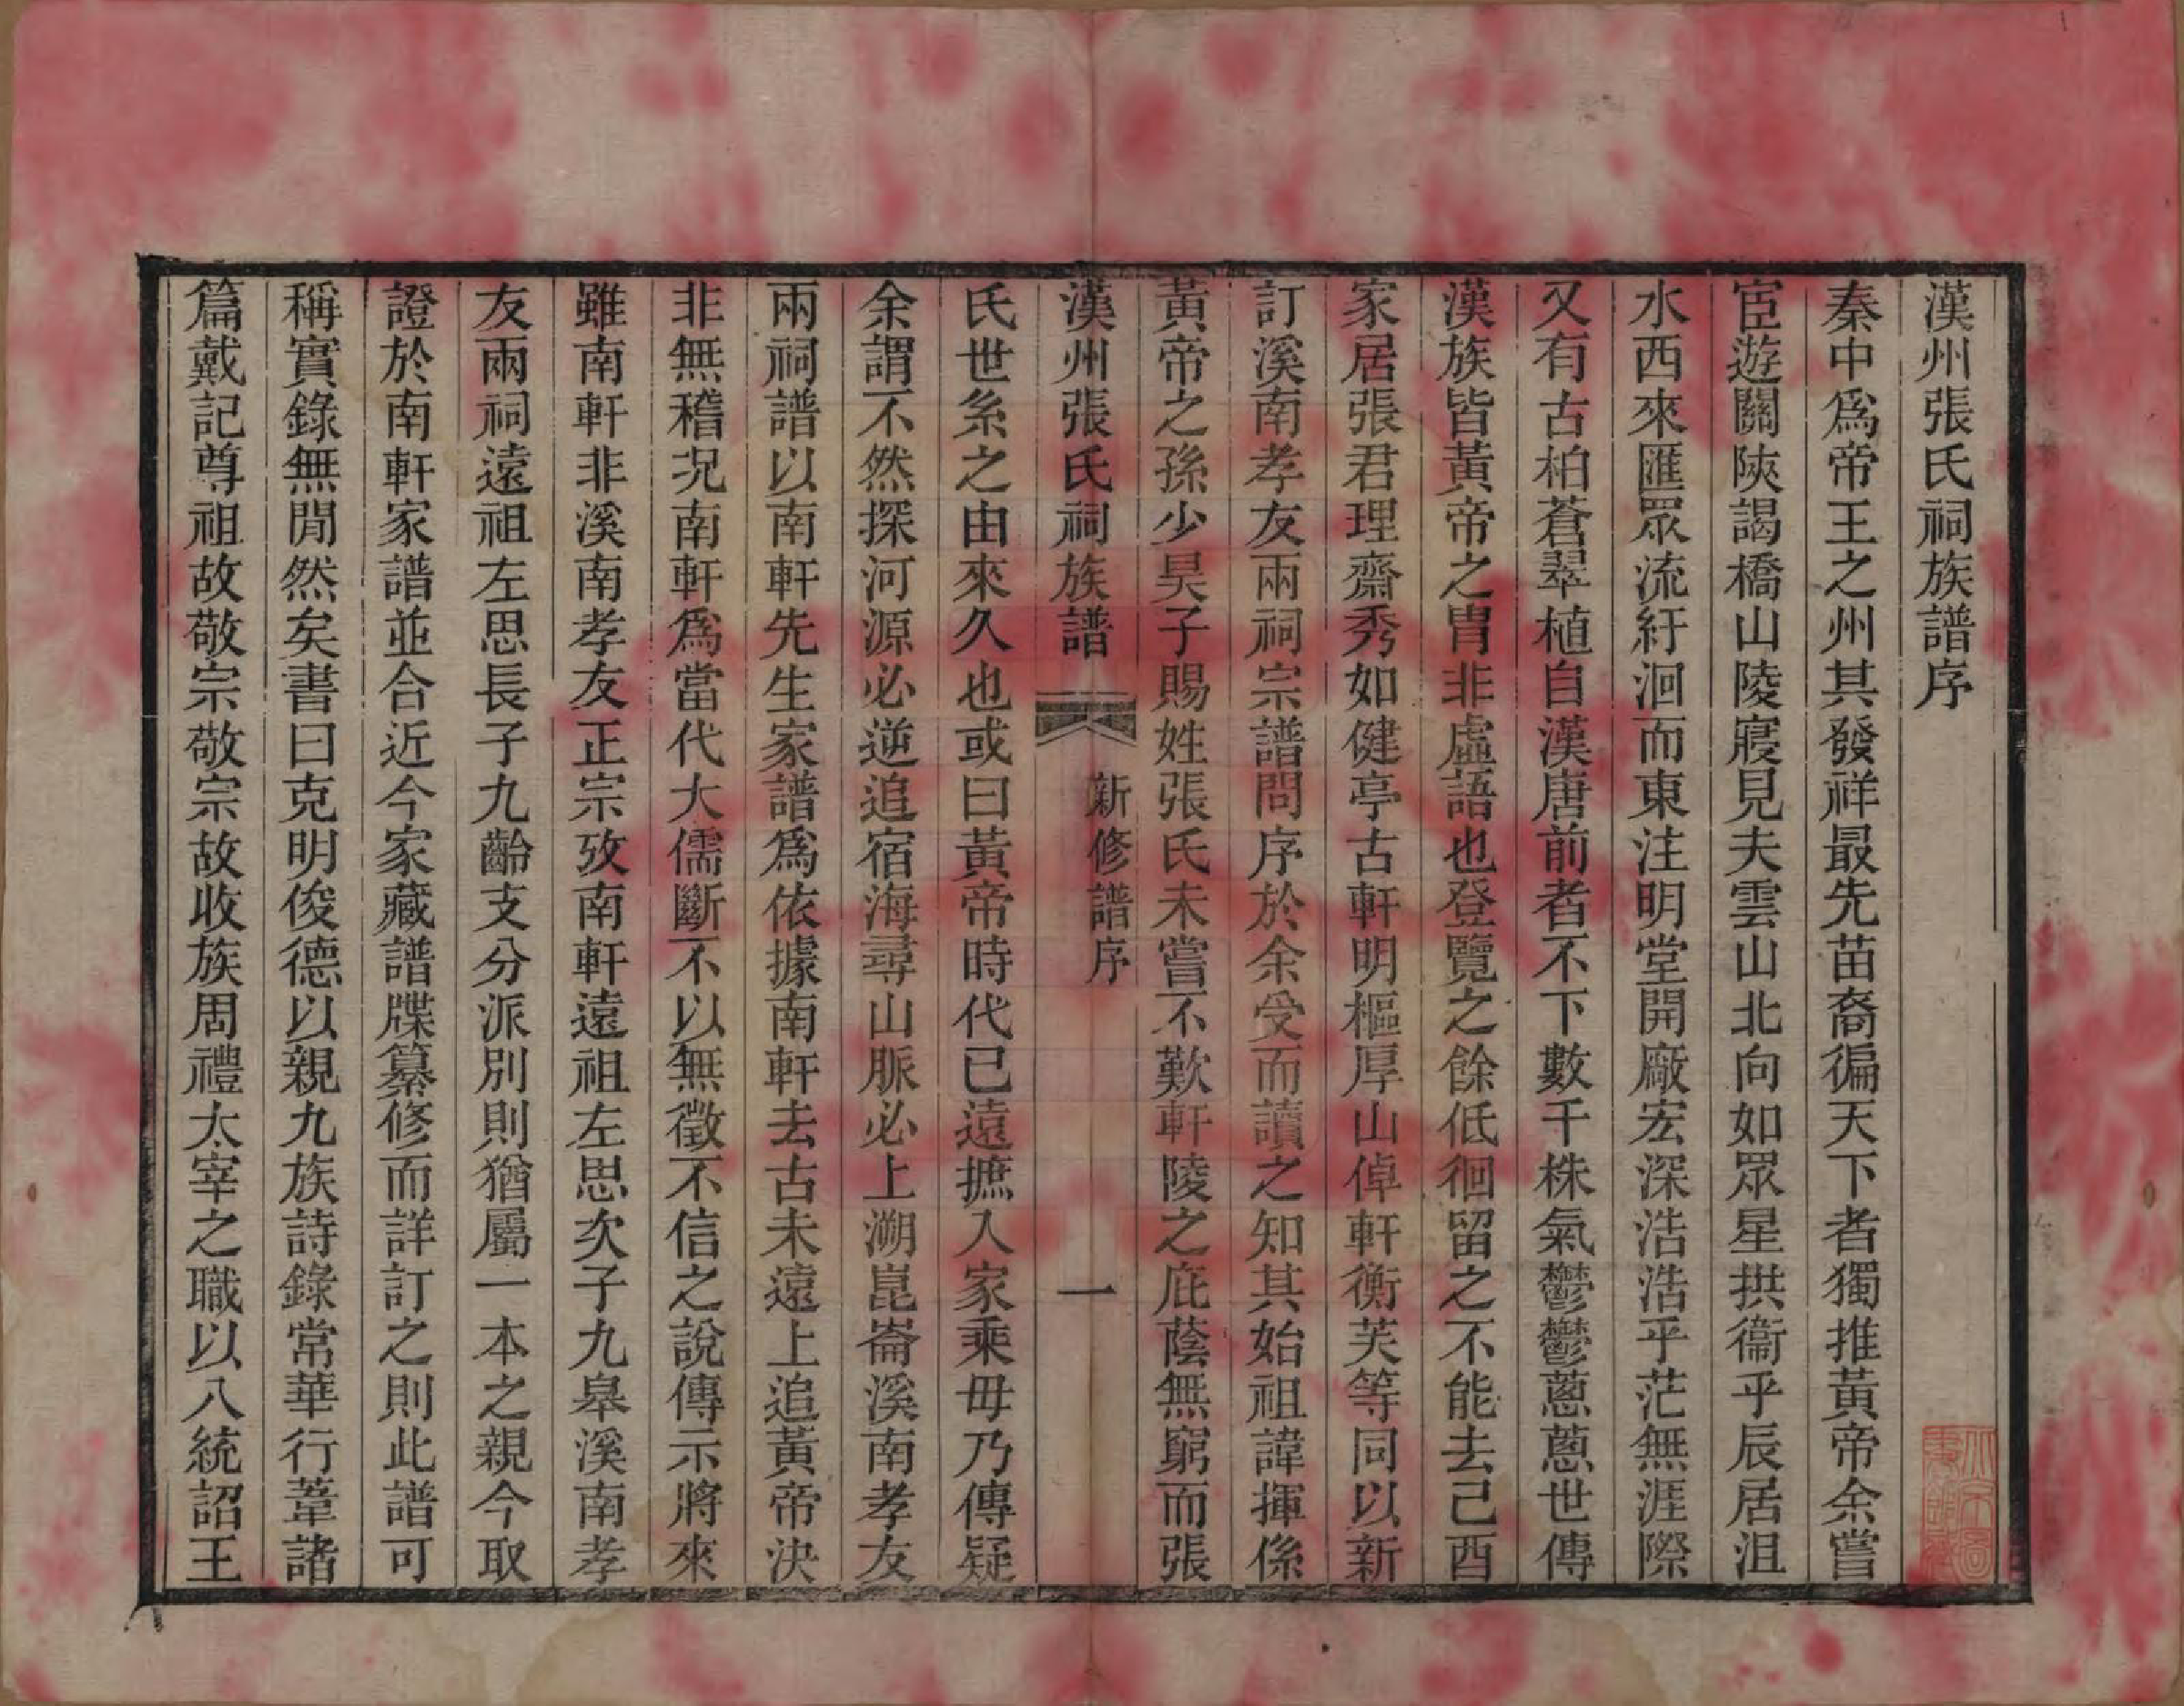 漢州張氏祠族譜序
秦中爲帝王之州其發祥最先苗裔徧天下者獨推黃帝余嘗
宦遊關陝謁橋山陵寢見夫雲山北向如眾星拱衞乎辰居沮
水西來匯眾流紆洄而東注明堂開廠宏深浩浩乎茫無涯際
又有古柏蒼翠植自漢唐前者不下數千株氣鬱鬱蔥蔥世傳
漢族皆黃帝之胄非虛語也登覽之餘低徊留之不能去己酉
家居張君理齋秀如健亭古軒明樞厚山倬軒衡芙等同以新
訂溪南孝友兩祠宗譜問序於余受而讀之知其始祖諱揮係
黃帝之孫少昊子賜姓張氏未嘗不歎軒陵之庇蔭無窮而張
漢州張氏祠族譜 新修譜序 一
氏世系之由來久也或曰黃帝時代已遠摭入家乘毋乃傳疑
余謂不然探河源必逆追宿海尋山脈必上溯崑崙溪南孝友
兩祠譜以南軒先生家譜爲依據南軒去古未遠上追黃帝決
非無稽况南軒爲當代大儒斷不以無徵不信之說傳示將來
雖南軒非溪南孝友正宗攷南軒遠祖左思次子九皋溪南孝
友兩祠遠祖左思長子九齡支分派別則猶屬一本之親今取
證於南軒家譜並合近今家藏譜牒纂修而詳訂之則此譜可
稱實錄無閒然矣書曰克明俊德以親九族詩錄常華行葦諸
篇戴記尊祖故敬宗敬宗故收族周禮太宰之職以八統詔王